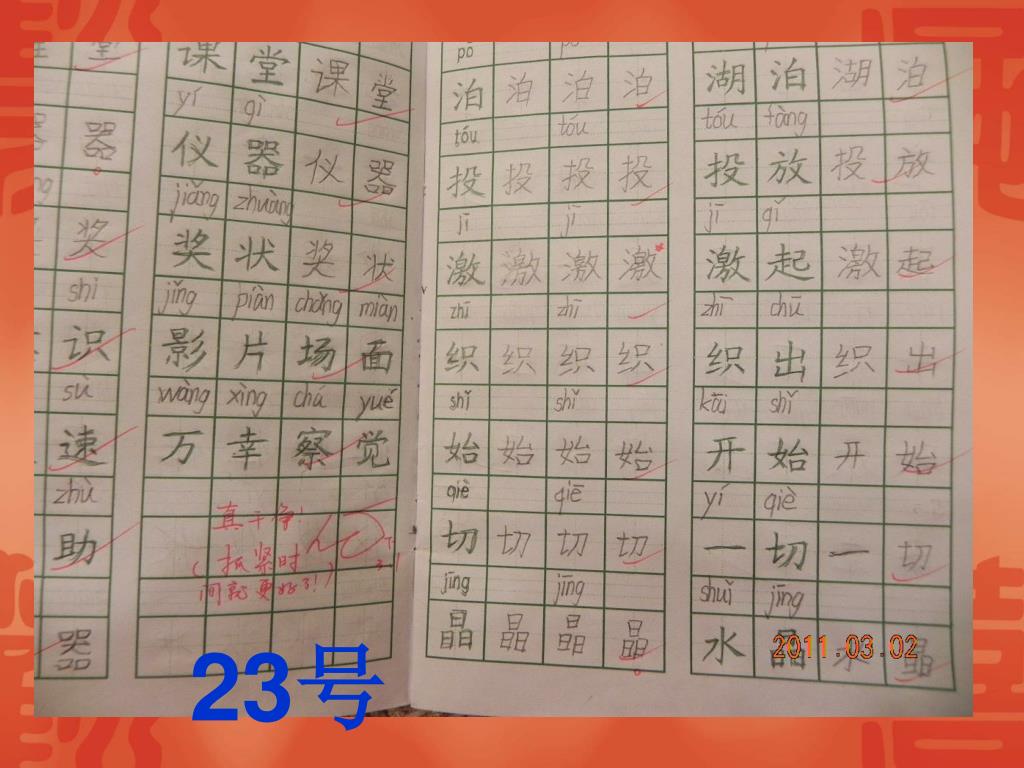 堂
器 器
奖
shi
识
sù
速
zhù
助
器
课 堂 课 堂
yí qì
仪 器 仪 器
jiǎng zhuàng
奖 状 奖 状
jǐng piàn chǎng miàn
影 片 场 面
wàng xìng chá yué
万 幸 察 觉
真干净!
(抓紧时
间就更好了!)
pō pō
泊 泊 泊 泊
tóu tóu
投 投 投 投
jī jī
激 激 激 激
zhī zhī
织 织 织 织
shǐ shǐ
始 始 始 始
qiè qiē
切 切 切 切
jīng jīng
晶 晶 晶 晶
湖 泊 湖 泊
tóu tàng
投 放 投 放
jī qǐ
激 起 激 起
zhī chū
织 出 织 出
kāi shǐ
开 始 开 始
yí qiè
一 切 一 切
shuǐ jīng
水 晶 水 晶
2011.03.02
23号